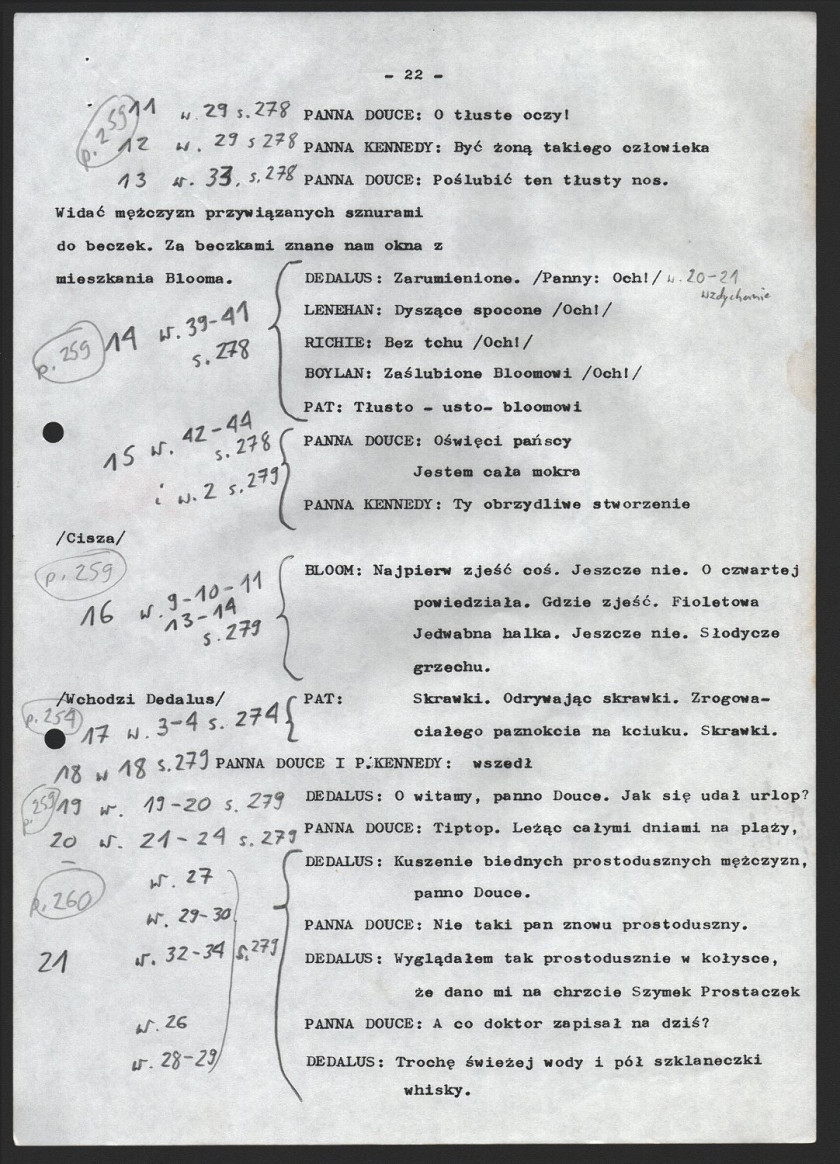 - 22 -
p. 259 11 w. 29 s. 278 PANNA DOUCE: O tłuste oczy!
12 w. 29 s 278 PANNA KENNEDY: Być żoną takiego człowieka
13 w. 33, s. 278 PANNA DOUCE: Poślubić ten tłusty nos.
Widać mężczyzn przywiązanych sznurami
do beczek. Za beczkami znane nam okna z
mieszkania Blooma. DEDALUS: Zarumienione. /Panny: Och!/ w. 20-21
wzdychanie
LENEHAN: Dyszące spocone /Och!/
p. 259 14 w. 39-41 RICHIE: Bez tchu /Och!/
s. 278 BOYLAN: Zaślubione Bloomowi /Och!/
PAT: Tłusto - usto- bloomowi
15 w. 42-44 PANNA DOUCE: Oświęci pańscy
s. 278 Jestem cała mokra
i w. 2 s. 279 PANNA KENNEDY: Ty obrzydliwe stworzenie
/Cisza/
p. 259 BLOOM: Najpierw zjeść coś. Jeszcze nie. O czwartej
16 w. 9-10-11 powiedziała. Gdzie zjeść. Fioletowa
13-14 Jedwabna halka. Jeszcze nie. Słodycze
s. 279 grzechu.
/Wchodzi Dedalus/ PAT: Skrawki. Odrywając skrawki. Zrogowa-
p. 254 17 w. 3-4 s. 274 ciałego paznokcia na kciuku. Skrawki.
18 w 18 s. 279 PANNA DOUCE I P. KENNEDY: wszedł
p. 259 19 w. 19-20 s. 279 DEDALUS: O witamy, panno Douce. Jak się udał urlop?
20 w. 21-24 s. 279 PANNA DOUCE: Tiptop. Leżąc całymi dniami na plaży,
w. 27 DEDALUS: Kuszenie biednych prostodusznych mężczyzn,
p. 260 panno Douce.
w. 29-30 PANNA DOUCE: Nie taki pan znowu prostoduszny.
21 w. 32-34 s. 279 DEDALUS: Wyglądałem tak prostodusznie w kołysce,
że dano mi na chrzcie Szymek Prostaczek
w. 26 PANNA DOUCE: A co doktor zapisał na dziś?
w. 28-29 DEDALUS: Trochę świeżej wody i pół szklaneczki
whisky.